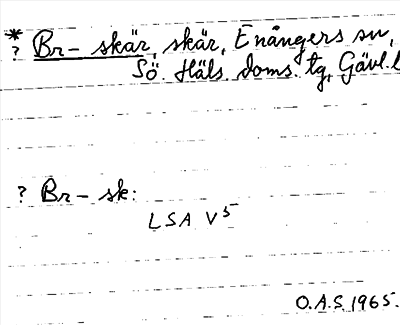 * ? Br- skär, skär, Enångers sn,
Sö. Häls. doms. tg, Gävl. l
? Br- sk:
LSA V5
O.A.S. 1965.